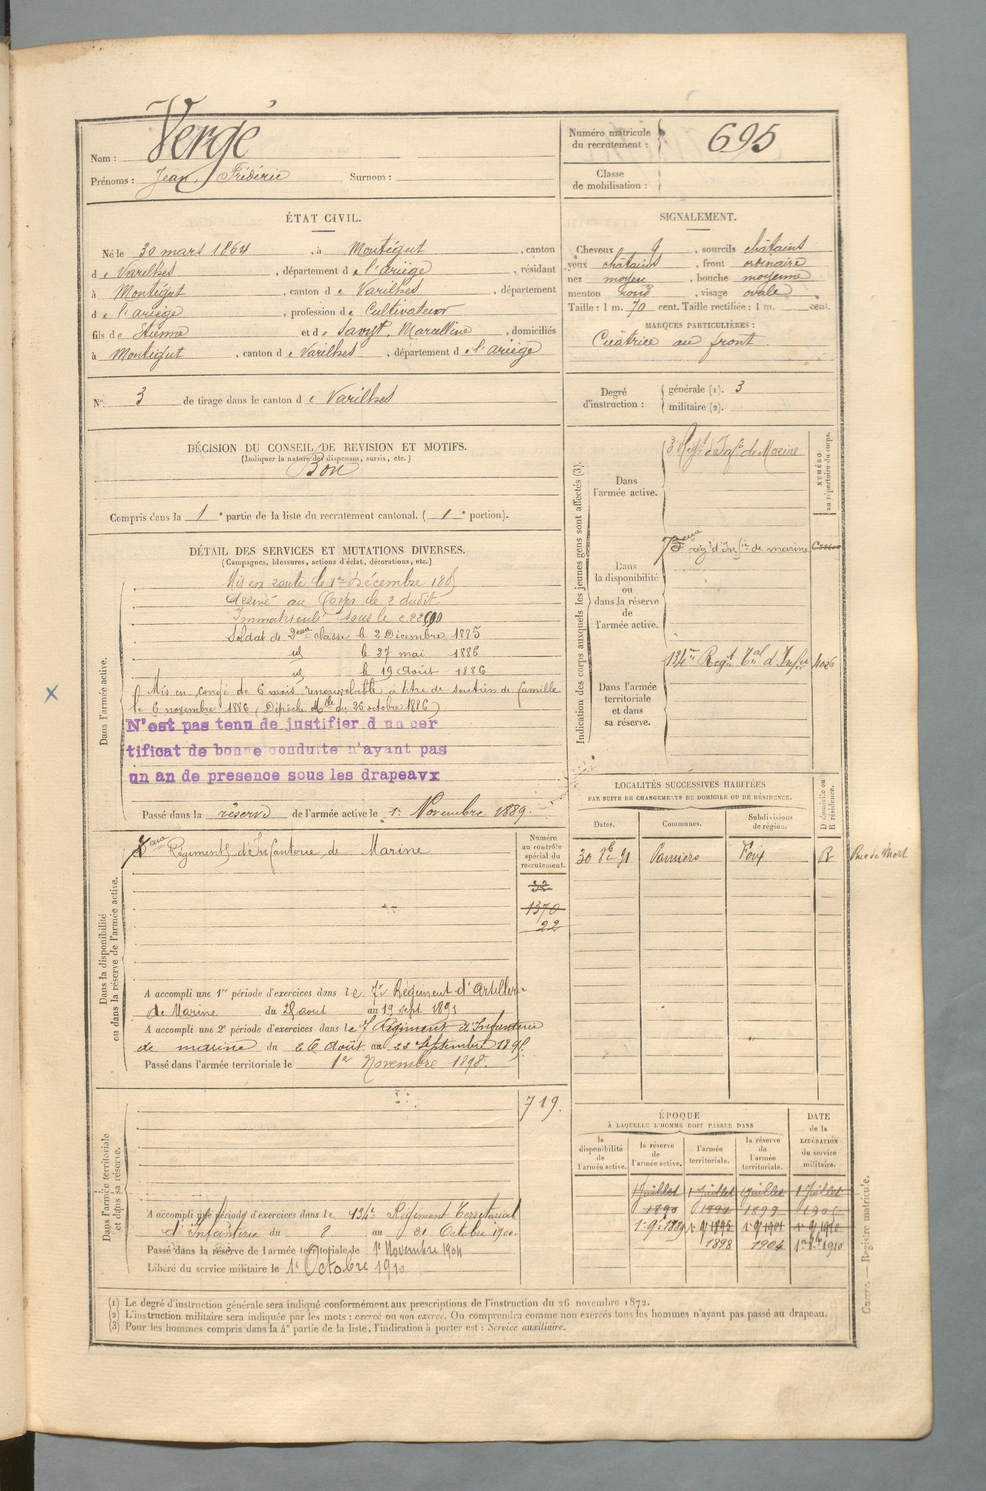 Nom : Vergé
Prénoms : Jean, Frédéric Surnom :
Numéro matricule du recrutement : 695
Classe de mobilisation :
ÉTAT CIVIL.
Né le 30 mars 1864, à Montégut, canton
de Varilhes, département de l'ariège, résidant
à Montégut, canton de Varilhes, département
de l'ariège, profession de Cultivateur
fils de Etienne et de Savyt, Marcelline, domiciliés
à Montégut, canton de Varilhes, département de l'ariège
N° 3 de tirage dans le canton de Varilhes
SIGNALEMENT.
Cheveux, sourcils châtains
yeux châtains, front ordinaire
nez moyen, bouche moyenne
menton rond, visage ovale
Taille : 1 m. 70 cent. Taille rectifiée : 1 m. cent.
MARQUES PARTICULIÈRES :
Cicatrice au front.
Degré d'instruction : générale (1). 3
militaire (2).
DÉCISION DU CONSEIL DE REVISION ET MOTIFS.
(Indiquer la nature des dispenses, sursis, etc.)
Bon
Compris dans la 1e partie de la liste du recrutement cantonal. (1e portion).
DÉTAIL DES SERVICES ET MUTATIONS DIVERSES.
(Campagnes, blessures, actions d'éclat, décorations, etc.)
Dans l'armée active.
Mis en route le 1er Décembre 1885
Arrivé au Corps le 2 dudit
Immatriculé sous le
Soldat de 2eme classe le 2 Décembre 1885
id le 27 mai 1886
id le 19 Août 1886
Mis en congé de 6 mois renouvelable à titre de soutien de famille
le 6 novembre 1886 (Dépêche Mlle du 26 octobre 1886)
N'est pas tenu de justifier d un cer
tificat de bonne conduite n'ayant pas
un an de presence sous les drapeaux
Passé dans la réserve de l'armée active le 1er Novembre 1889.
Dans la disponibilité ou dans la réserve de l'armée active.
Régiment d'Infanterie de Marine
Numéro au contrôle spécial du recrutement.
32
1370
22
A accompli une 1re période d'exercices dans le Régiment d'Artillerie
de Marine du 23 août au 19 sept 1891
A accompli une 2e période d'exercices dans le 7 Régiment d'Infanterie
de marine du 26 Août au 22 Septembre 1895
Passé dans l'armée territoriale le 1er Novembre 1898.
Dans l'armée territoriale et dans sa réserve.
719.
A accompli une période d'exercices dans le 134e Régiment Territorial
d'Infanterie du au 31 Octobre 1900
Passé dans la réserve de l'armée territoriale le 1er Novembre 1904
Libéré du service militaire le 1er Octobre 1910
Indication des corps auxquels les jeunes gens sont affectés (3).
NUMÉRO au répertoire du corps.
Dans l'armée active.
3e Regt d'Infie de Marine
Dans la disponibilité ou dans la réserve de l'armée active.
regt d'Infie de marine
Dans l'armée territoriale et dans sa réserve.
134e Regt Tal d'Infie
LOCALITÉS SUCCESSIVES HABITÉES
PAR SUITE DE CHANGEMENTS DE DOMICILE OU DE RÉSIDENCE.
Dates. Communes. Subdivisions de région. D domicile ou R résidence.
30 91 Pamiers Foix R
ÉPOQUE
À LAQUELLE L'HOMME DOIT PASSER DANS
DATE de la LIBÉRATION du service militaire.
la disponibilité de l'armée active.
la réserve de l'armée active.
l'armée territoriale.
la réserve de l'armée territoriale.
1 Juillet 1 Juillet 1 Juillet 1 Juillet
1890
1898 1904 1910
(1) Le degré d'instruction générale sera indiqué conformément aux prescriptions de l'instruction du 26 novembre 1872.
(2) L'instruction militaire sera indiquée par les mots : exercé ou non exercé. On comprendra comme non exercés tous les hommes n'ayant pas passé au drapeau.
(3) Pour les hommes compris dans la 4e partie de la liste, l'indication à porter est : Service auxiliaire.
Guerre. — Registre matricule.